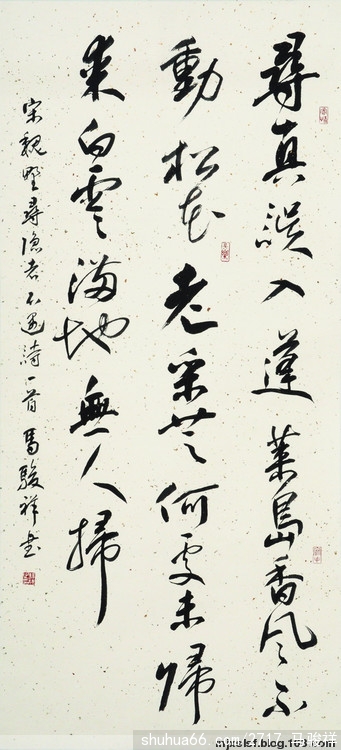 尋真誤入蓬萊島香風不
動松花老采芝何處未歸
來白雲滿地無人掃
宋魏野尋隱者不遇詩一首 馬駿祥書
shuhua66.com/2717 马骏祥